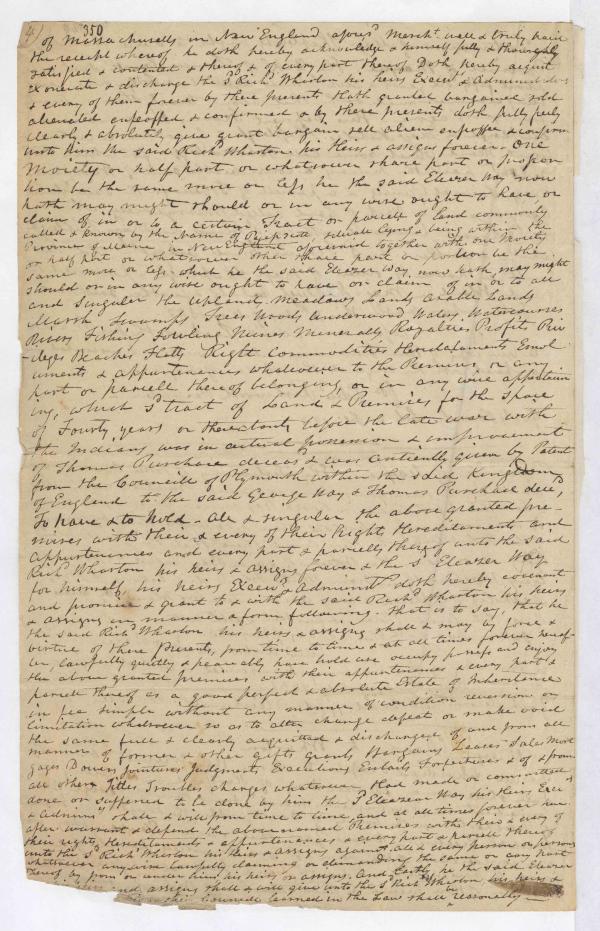 4/ 350
of Massachusetts in New England afores<sup>d</sup> Merch<sup>t</sup> well & truly paid
the receipt whereof he doth hereby acknowledge & himself fully & thoroughly
satisfied & contented & thereof & of every part thereof Doth hereby acquit
exonerate & discharge the s<sup>d</sup> Rich<sup>d</sup> Wharton his heirs Execut<sup>rs</sup> & Administrators
& every of them forever by these presents Hath granted bargained sold
alienated enfeoffed & confirmed & by these presents doth fully freely
clearly & absolutely give grant bargain sell alien enfeoffe & confirm
unto him the said Rich<sup>d</sup> Wharton his Heirs & assigns forever One
Moiety or half part or whatsoever share part or propor
tion be the same more or less he the said Eleazer Way now
hath may might should or in any wise ought to have or
claim of in or to a certain Tract or parcell of land commonly
called & known by the Name of Pejepscott situate lying & being within the
Province of Maine in New England aforesaid together with one Moiety
or half part or whatsoever other share part or portion be the
same more or less which he the said Eleazer Way now hath may might
should or in any wise ought to have or claim of in or to all
and singular the Upland Meadows Lands Arable Lands
Marsh Swamps Trees Woods Underwood Waters Watercourses
Rivers Fishing Fowling Mines Mineralls Royalties Profits Priv
-ileges Beaches Flatts Right Commodities Heredataments Emol
uments & appurtenances whatsoever to the Premises or any
part or parcell thereof belonging or in any wise appertain
ing, which s<sup>d</sup> tract of Land & Premises for the space
of Fourty years or thereabouts before the late war with
the Indians was in actual possession & improvement
of Thomas Purchase deceas<sup>d</sup> & was antiently given by Patent
from the Councille of Plymouth within the said Kingdom
of England to the said George Way & Thomas Purchase dece<sup>d</sup>,
To have & to hold - all & singular the above granted pre-
mises with their & every of their Rights Hereditaments and
appurtenances and every part & parcell thereof unto the said
Rich<sup>d</sup> Wharton his heirs & assigns forever & the s<sup>d</sup> Eleazer Way
for himself his heirs Execu<sup>rs</sup> & Administ<sup>rs</sup> doth hereby covenant
and promise & grant to & with the said Rich<sup>d</sup> Wharton his heirs
& assigns in manner & form following. that is to say, that he
the said Rich<sup>d</sup> Wharton his heirs & assigns shall & may by force &
virtue of these Presents, from time to time & at all times forever hereaf-
ter, lawfully quietly & peaceably have hold use occupy possess and enjoy
the above granted premises with their appurtenances & every part &
parcell thereof as a good perfect & absolute Estate of Inheritance
in fee simple without any manner of condition reversion or
limitation whatsoever so as to alter change defeat or make void
the same full & clearly acquitted & discharged of and from all
manner of former & other gifts grants Bargains Leases Sales Mort
gages Dowers Jointures Judgments Executions Entails Forfeitures & of & from
all other Titles Troubles charges whatsoever Had made or committed
done or suffered to be done by him the s<sup>d</sup> Eleazer Way his Heirs Exec<sup>rs</sup>
& Admin<sup>rs</sup> shall & will from time to time and at all times forever here
after warrant & defend the above named Premises with their & every of
their rights Hereditaments & appurtenances & every part & parcell thereof
unto the s<sup>d</sup> Rich<sup>d</sup> Wharton his heirs & assigns against all & every person or persons
whatsoever any wise lawfully claiming or demanding the same or any part
thereof by from or under him his heirs or assigns. And Lastly he the said Eleazer
his heirs and assigns shall & will give unto the s<sup>d</sup> Rich<sup>d</sup> Wharton his heirs &
Counsele learned in the Law shall be reasonally